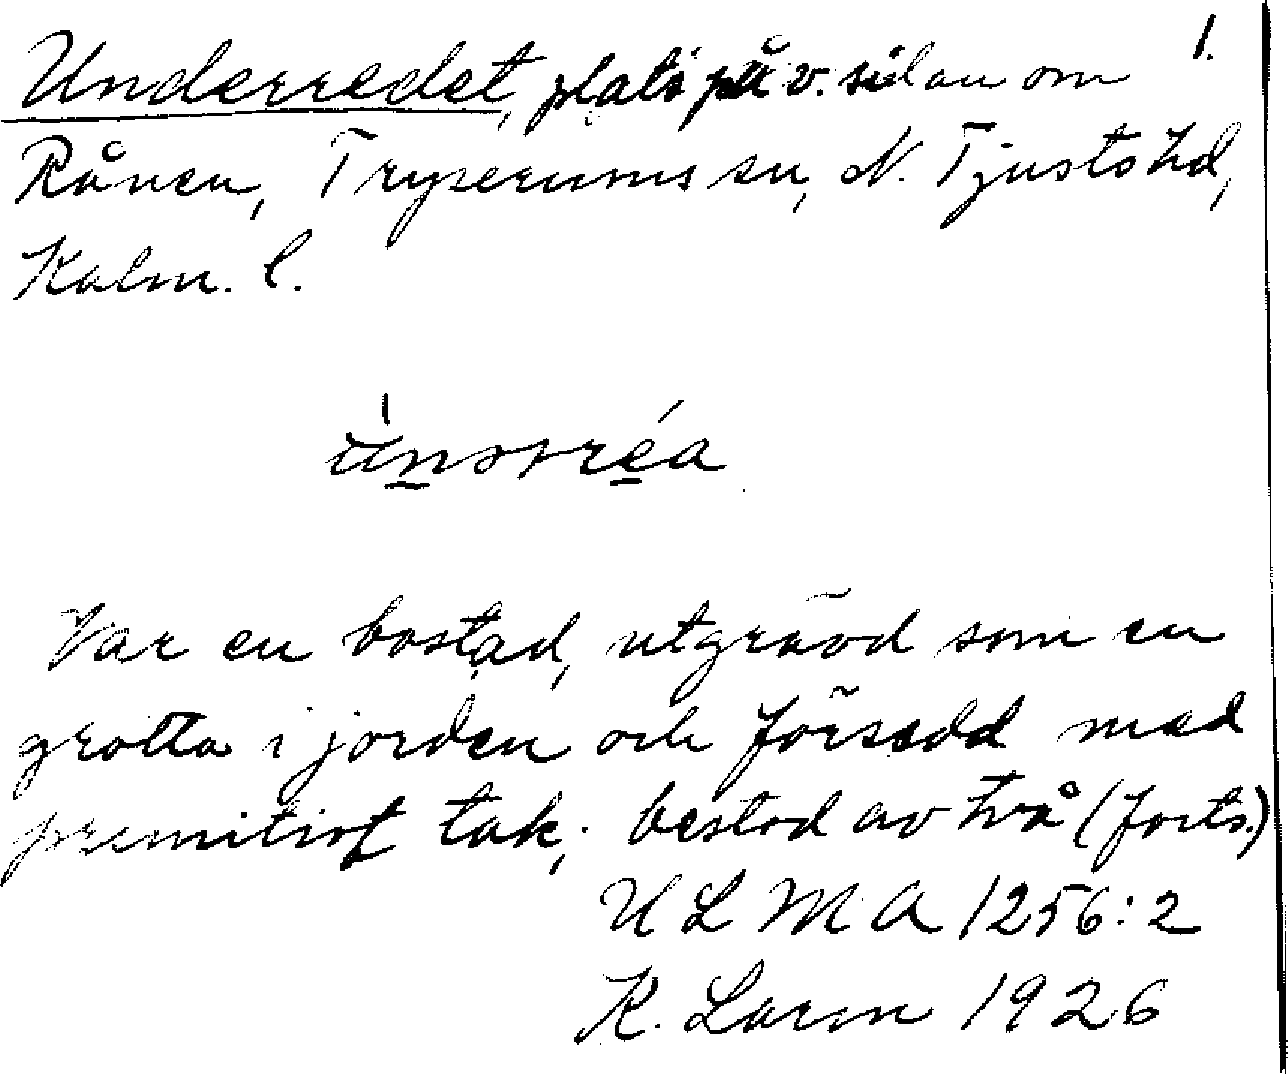 1.
Underredet, plats på v. sidan om
Rånen, Tryserums sn, N. Tjusts hd,
Kalm. l.
Var en bostad, utgrävd som en
grotta i jorden och försedd med
premitivt tak; bestod av två (forts.)
ULMA 1256:2
K. Larm 1926